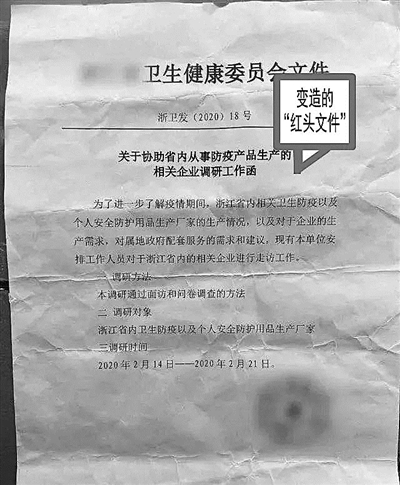 卫生健康委员会文件
变造的
“红头文件”
浙卫发（2020）18号
关于协助省内从事防疫产品生产的
相关企业调研工作函
为了进一步了解疫情期间，浙江省内相关卫生防疫以及
个人安全防护用品生产厂家的生产情况，以及对于企业的生
产需求，对属地政府配套服务的需求和建议，现有本单位安
排工作人员对于浙江省内的相关企业进行走访工作。
一 调研方法
本调研通过面访和问卷调查的方法
二 调研对象
浙江省内卫生防疫以及个人安全防护用品生产厂家
三调研时间
2020年2月14日——2020年2月21日。